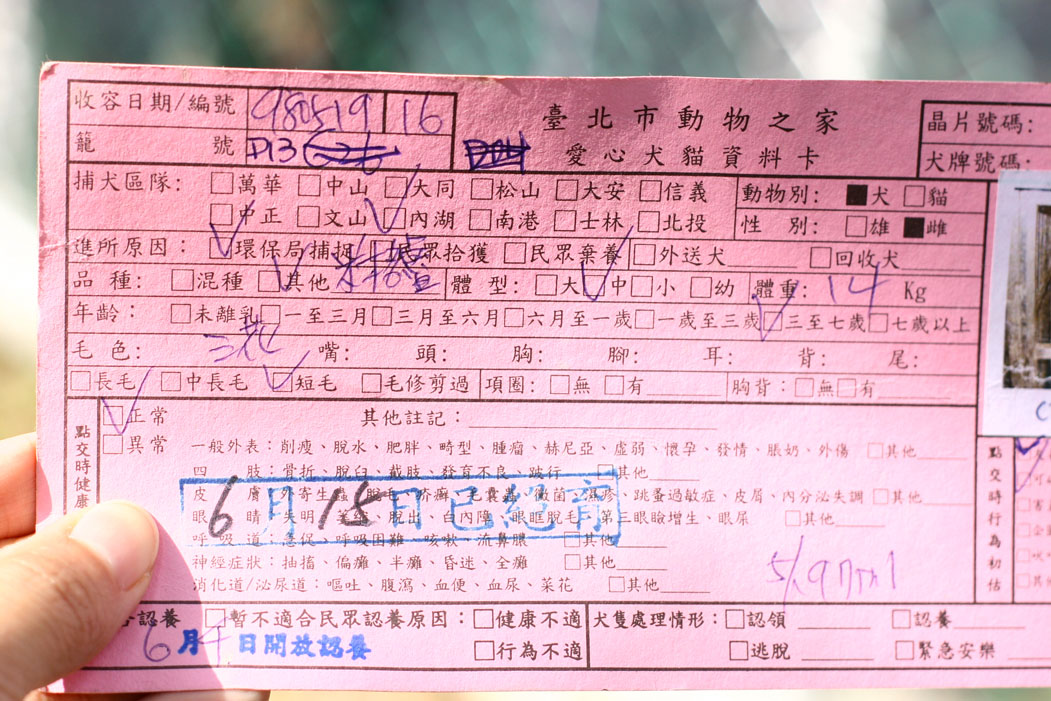 收容日期/編號 980519 16
籠 號 D13
臺北市動物之家
愛心犬貓資料卡
晶片號碼:
犬牌號碼:
捕犬區隊: □萬華 □中山 □大同 □松山 □大安 □信義
□中正 □文山 □內湖 □南港 □士林 □北投
動物別: ■犬 □貓
性 別: □雄 ■雌
進所原因: □環保局捕捉 □民眾拾獲 □民眾棄養 □外送犬 □回收犬
品 種: □混種 □其他 米格魯 體 型: □大 □中 □小 □幼 體重: 14 Kg
年齡: □未離乳 □一至三月 □三月至六月 □六月至一歲 □一歲至三歲 □三至七歲 □七歲以上
毛 色: 三花 嘴: 頭: 胸: 腳: 耳: 背: 尾:
□長毛 □中長毛 □短毛 □毛修剪過 項圈: □無 □有 胸背: □無 □有
點交時健康
□正常 其他註記:
□異常 一般外表: 削瘦、脫水、肥胖、畸型、腫瘤、赫尼亞、虛弱、懷孕、發情、脹奶、外傷 □其他
四 肢: 骨折、脫臼、截肢、發育不良、跛行 □其他
皮 膚: 外寄生蟲、脫毛、疥癬、毛囊蟲、黴菌、濕疹、跳蚤過敏症、皮屑、內分泌失調 □其他
6月15日已絕育
眼 睛: 失明、萎縮、脫出、白內障、眼眶脫毛、第三眼瞼增生、眼屎 □其他
呼吸道: 急促、呼吸困難、咳嗽、流鼻膿 □其他
神經症狀: 抽搐、偏癱、半癱、昏迷、全癱 □其他
消化道/泌尿道: 嘔吐、腹瀉、血便、血尿、菜花 □其他
點交時行為初估
認養 □暫不適合民眾認養原因: □健康不適 犬隻處理情形: □認領 □認養
6月4日開放認養 □行為不適 □逃脫 □緊急安樂